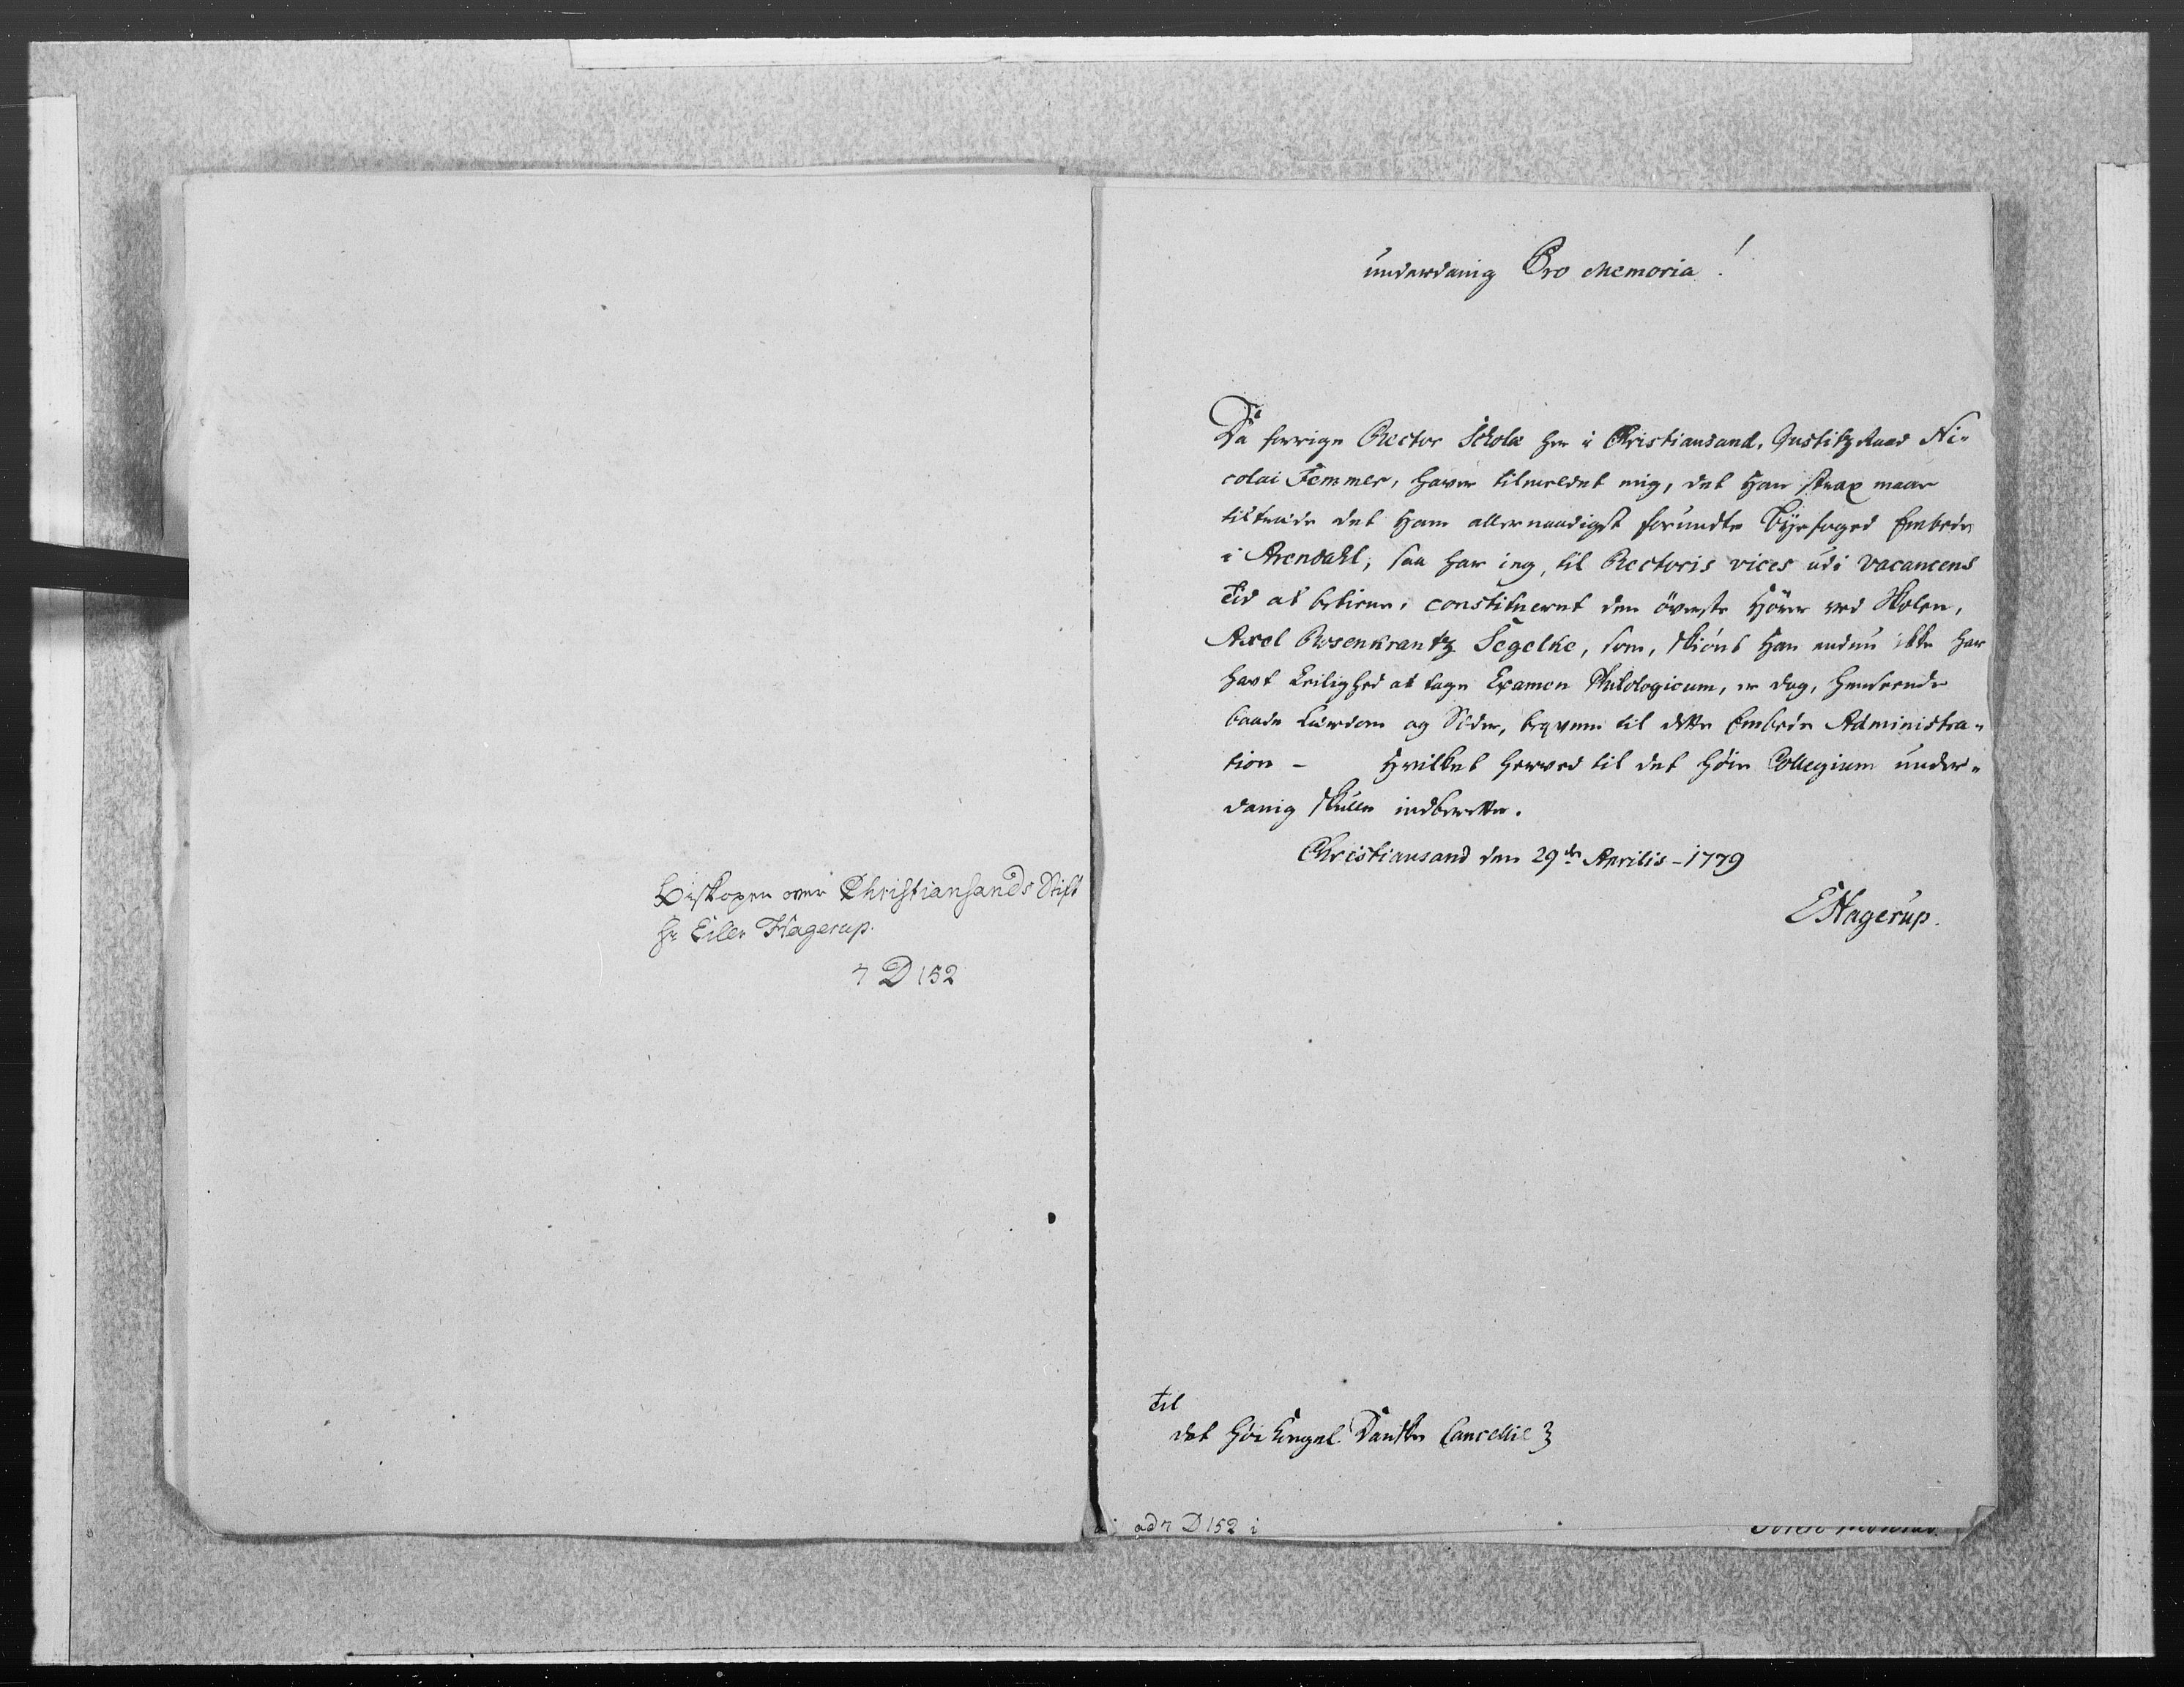 Biskopen over Christiansands Stift
Hr Eiler Hagerup.
7 D 152
underdanig Pro Memoria!
Da forrige Rector Scholæ her i Christiansand, Justitz Raad Ni-
colai Femmer, haver tilmeldet mig, det Han strax maae
tiltræde det Ham allernaadigst forundte Byefoged Embede
i Arendahl; saa har ieg, til Rectoris vices udi vacancens
Tid at betiene, constitueret den överste Hörer ved Skolen,
Axel Rosenkrantz Segelke, som, skiönt Han endnu ikke har
havt Leilighed at tage Examen Philologicum, er dog, henseende
baade Lærdom og Sæder, beqvem til dette Embede Administra-
tion - Hvilket herved til det höie Collegium under-
danig skulle indberette.
Christiansand den 29de Aprilis - 1779
EHagerup.
Til
det höie Kongel. Danske Cancellie
ad 7 D 152 i